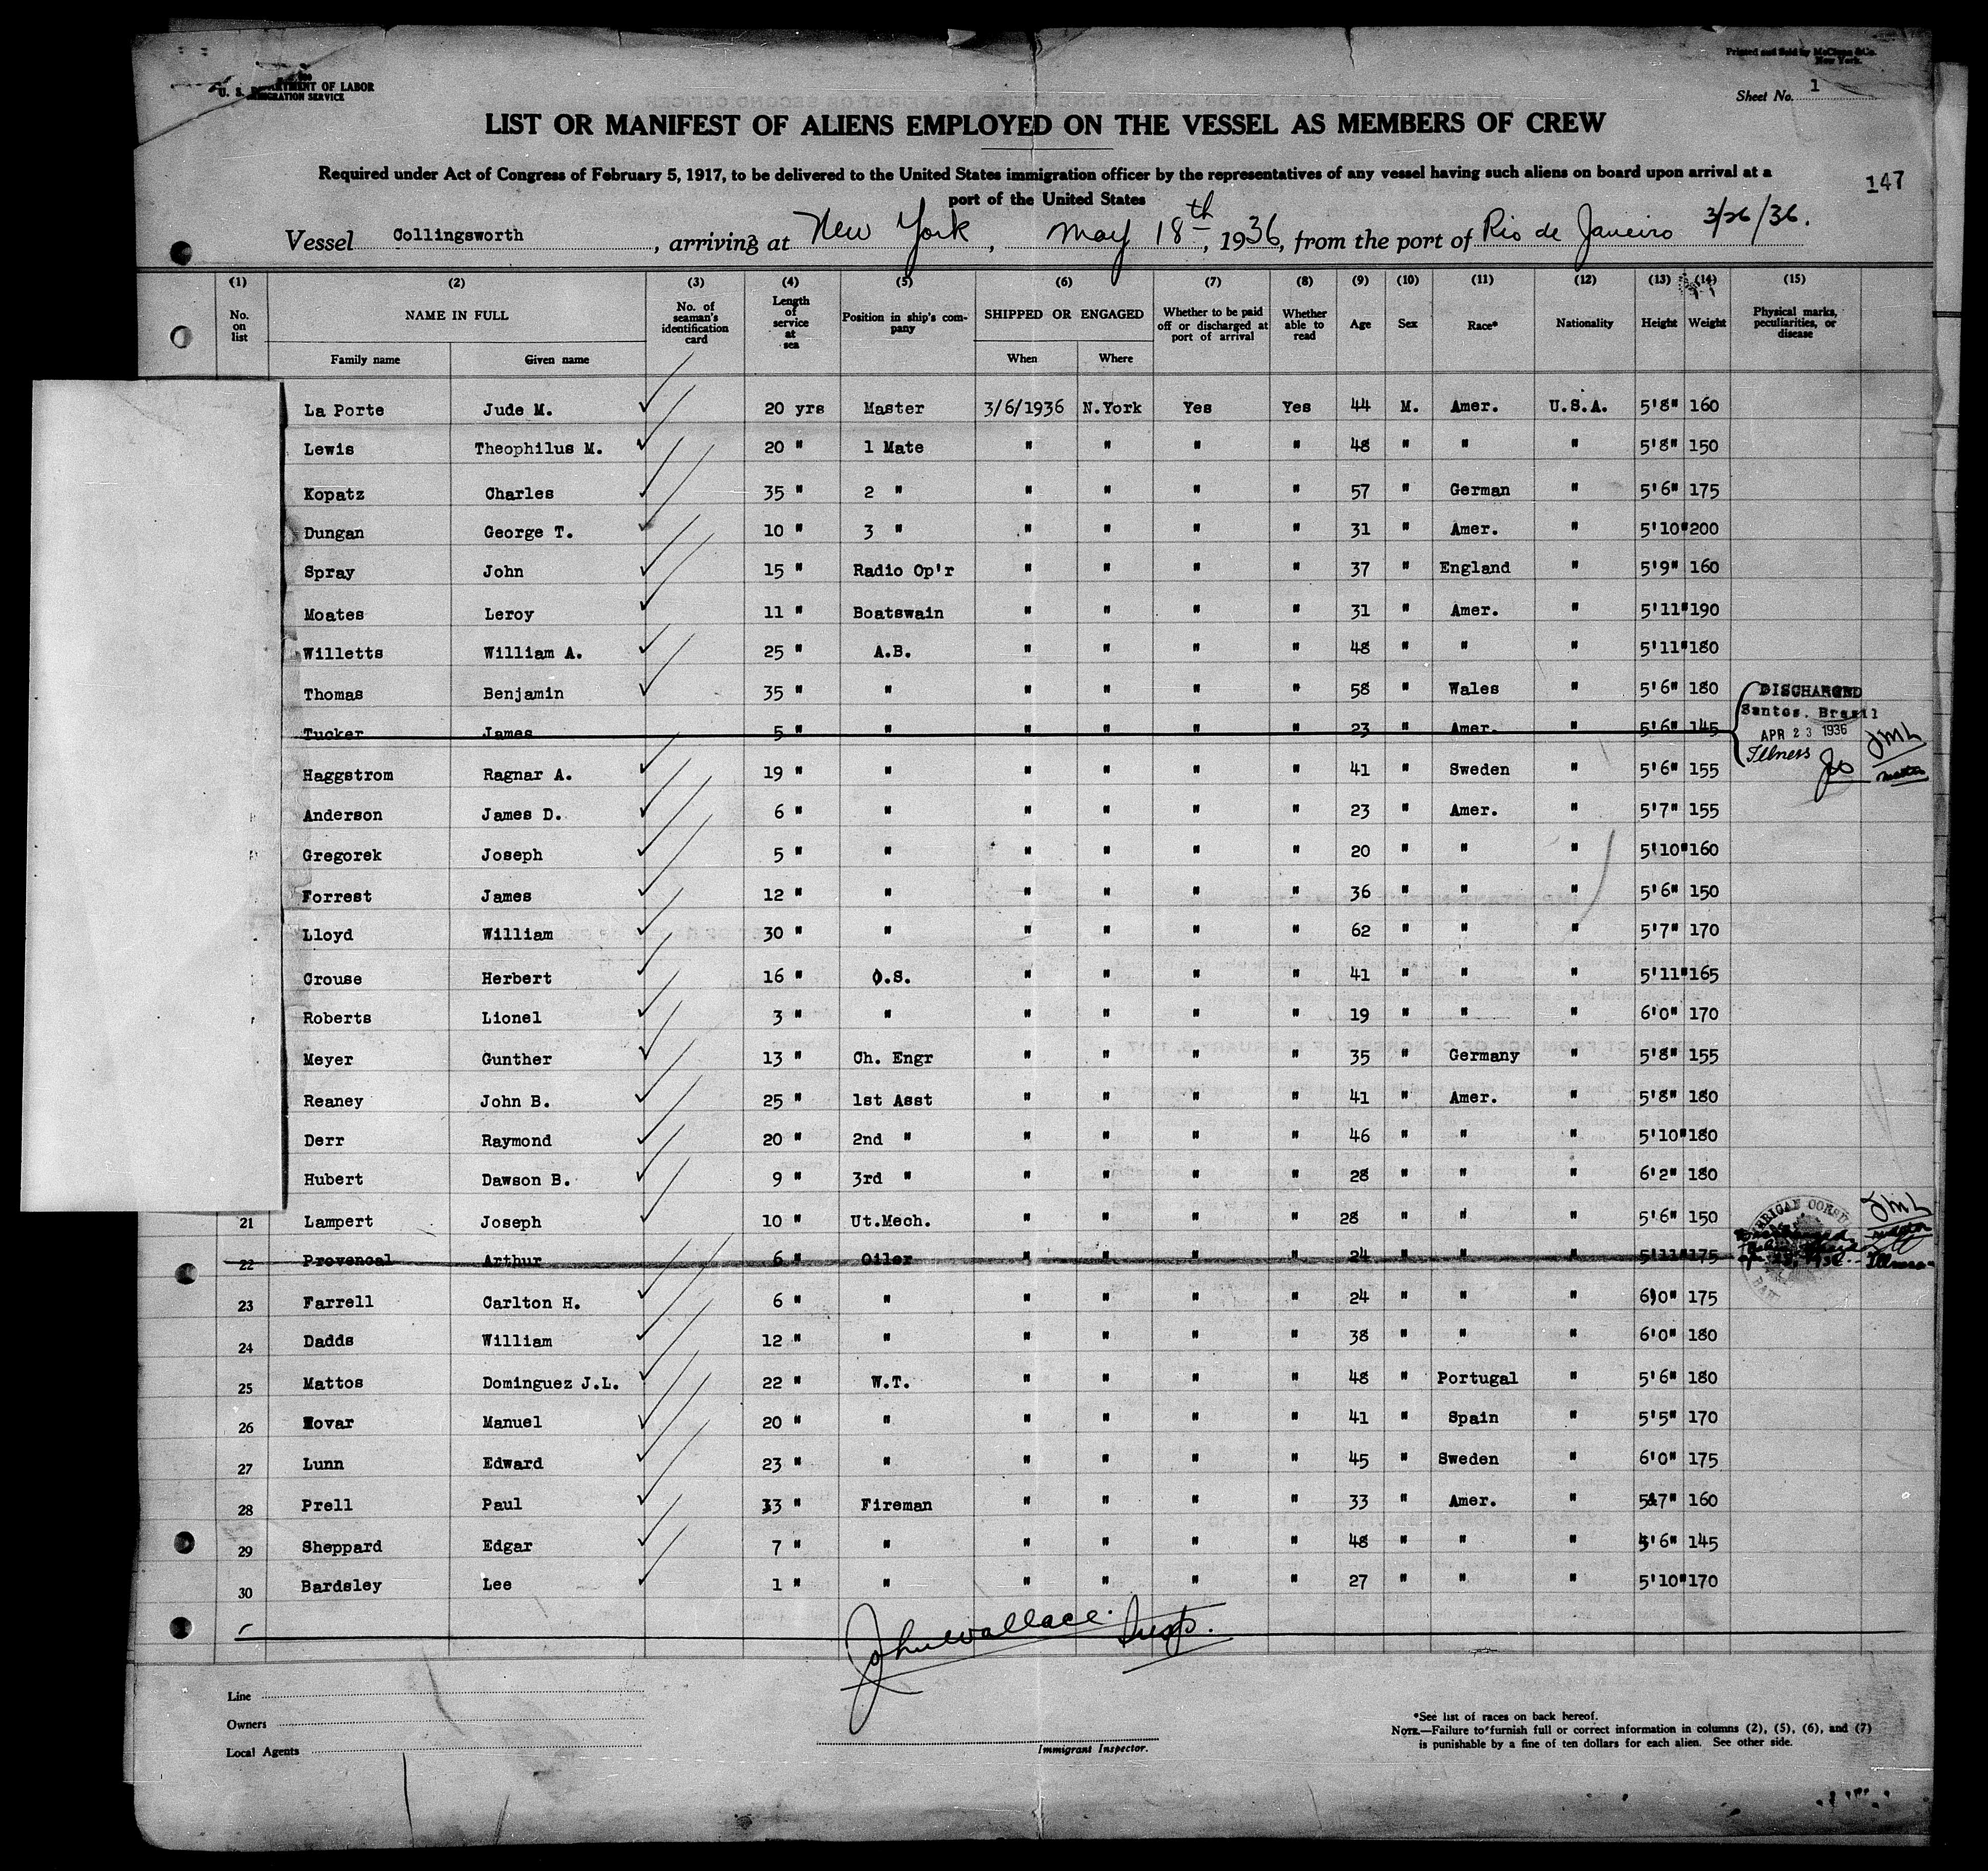 Printed and Sold by McClunn & Co.
New York.
U. S. DEPARTMENT OF LABOR
IMMIGRATION SERVICE
Sheet No. 1
LIST OR MANIFEST OF ALIENS EMPLOYED ON THE VESSEL AS MEMBERS OF CREW
Required under Act of Congress of February 5, 1917, to be delivered to the United States immigration officer by the representatives of any vessel having such aliens on board upon arrival at a
port of the United States
147
Vessel Collingsworth, arriving at New York, May 18th, 1936, from the port of Rio de Janeiro 3/26/36.
(1) (2) (3) (4) (5) (6) (7) (8) (9) (10) (11) (12) (13) (14) (15)
No. on list NAME IN FULL No. of seaman's identification card Length of service at sea Position in ship's company SHIPPED OR ENGAGED Whether to be paid off or discharged at port of arrival Whether able to read Age Sex Race* Nationality Height Weight Physical marks, peculiarities, or disease
Family name Given name When Where
La Porte Jude M. 20 yrs Master 3/6/1936 N.York Yes Yes 44 M. Amer. U.S.A. 5'8" 160
Lewis Theophilus M. 20 " 1 Mate " " " " 48 " " " 5'8" 150
Kopatz Charles 35 " 2 " " " " " 57 " German " 5'6" 175
Dungan George T. 10 " 3 " " " " " 31 " Amer. " 5'10" 200
Spray John 15 " Radio Op'r " " " " 37 " England " 5'9" 160
Moates Leroy 11 " Boatswain " " " " 31 " Amer. " 5'11" 190
Willetts William A. 25 " A.B. " " " " 48 " " " 5'11" 180
Thomas Benjamin 35 " " " " " " 58 " Wales " 5'6" 180
Tucker James 5 " " " " " " 23 " Amer. " 5'6" 145
DISCHARGED
Santos. Brasil
APR 23 1936
Illness JML
Master
Haggstrom Ragnar A. 19 " " " " " " 41 " Sweden " 5'6" 155
Anderson James D. 6 " " " " " " 23 " Amer. " 5'7" 155
Gregorek Joseph 5 " " " " " " 20 " " " 5'10" 160
Forrest James 12 " " " " " " 36 " " " 5'6" 150
Lloyd William 30 " " " " " " 62 " " " 5'7" 170
Crouse Herbert 16 " O.S. " " " " 41 " " " 5'11" 165
Roberts Lionel 3 " " " " " " 19 " " " 6'0" 170
Meyer Gunther 13 " Ch. Engr " " " " 35 " Germany " 5'8" 155
Reaney John B. 25 " 1st Asst " " " " 41 " Amer. " 5'8" 180
Derr Raymond 20 " 2nd " " " " " 46 " " " 5'10" 180
Hubert Dawson B. 9 " 3rd " " " " " 28 " " " 6'2" 180
21 Lampert Joseph 10 " Ut.Mech. " " " " 28 " " " 5'6" 150
22 Provencal Arthur 6 " Oiler " " " " 24 " " " 5'11" 175
AMERICAN CONSU
JML
Master
Illness
23 Farrell Carlton H. 6 " " " " " " 24 " " " 6'0" 175
24 Dadds William 12 " " " " " " 38 " " " 6'0" 180
25 Mattos Dominguez J.L. 22 " W.T. " " " " 48 " Portugal " 5'6" 180
26 Novar Manuel 20 " " " " " " 41 " Spain " 5'5" 170
27 Lunn Edward 23 " " " " " " 45 " Sweden " 6'0" 175
28 Prell Paul 33 " Fireman " " " " 33 " Amer. " 5'7" 160
29 Sheppard Edgar 7 " " " " " " 48 " " " 5'6" 145
30 Bardsley Lee 1 " " " " " " 27 " " " 5'10" 170
John Wallace. Insp.
Line
Owners
Local Agents
Immigrant Inspector.
*See list of races on back hereof.
NOTE.—Failure to furnish full or correct information in columns (2), (5), (6), and (7)
is punishable by a fine of ten dollars for each alien. See other side.